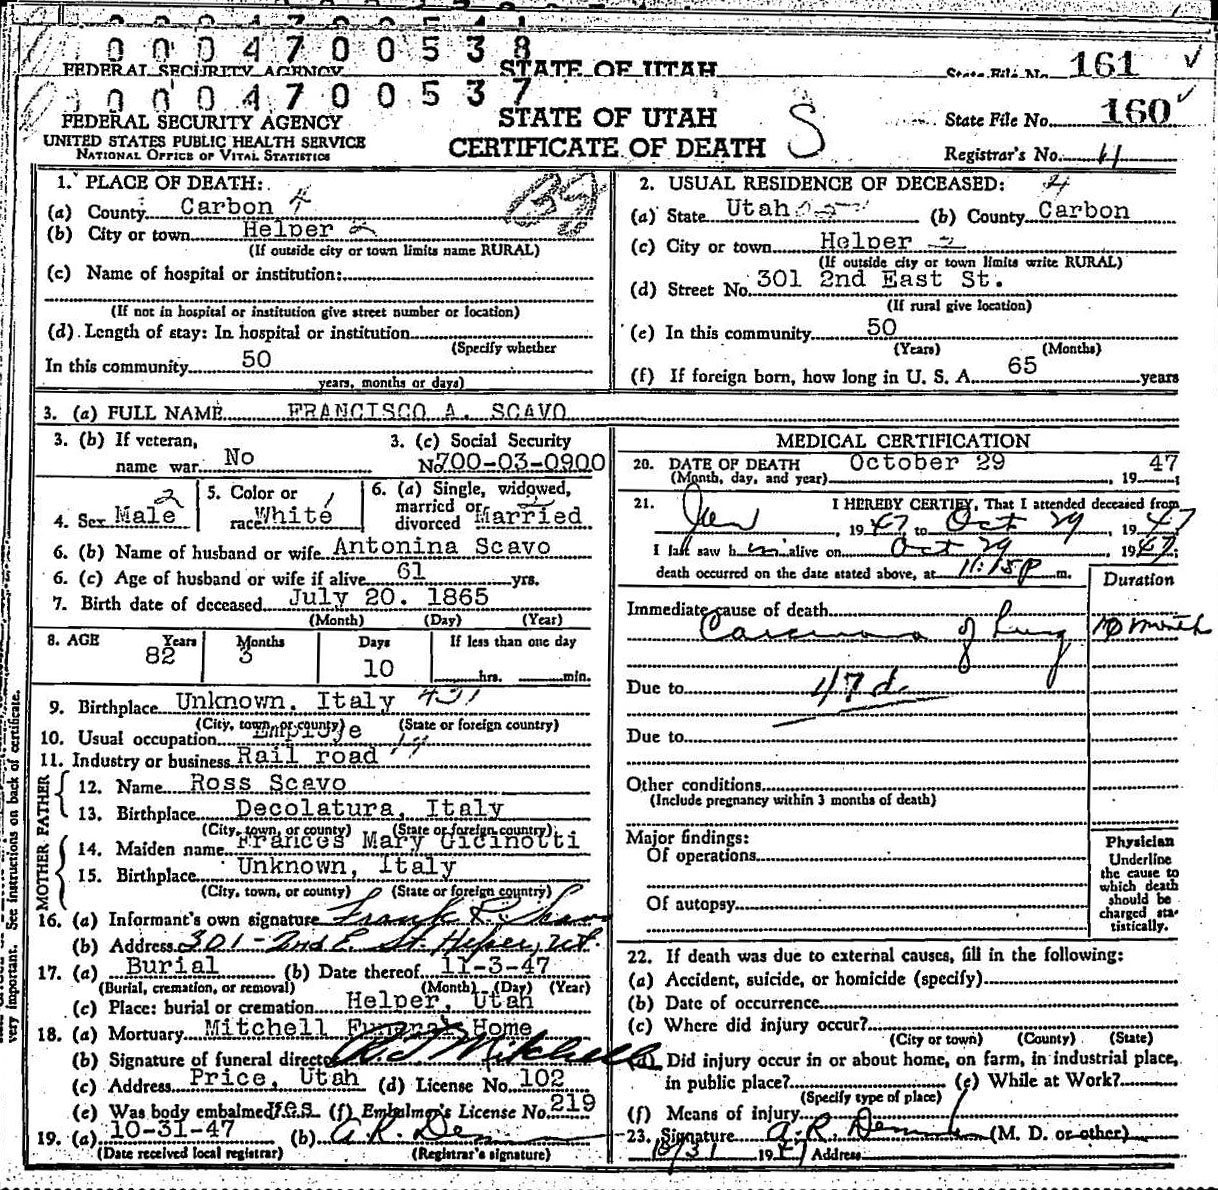 0 0 0 4 7 0 0 5 3 8
FEDERAL SECURITY AGENCY STATE OF UTAH State File No. 161
0 0 0 4 7 0 0 5 3 7
FEDERAL SECURITY AGENCY STATE OF UTAH State File No. 160
UNITED STATES PUBLIC HEALTH SERVICE
NATIONAL OFFICE OF VITAL STATISTICS CERTIFICATE OF DEATH S Registrar's No. 11
1. PLACE OF DEATH:
(a) County Carbon 4
(b) City or town Helper 2
(If outside city or town limits name RURAL)
(c) Name of hospital or institution:
(If not in hospital or institution give street number or location)
(d) Length of stay: In hospital or institution
(Specify whether
In this community 50
years, months or days)
2. USUAL RESIDENCE OF DECEASED: 4
(a) State Utah (b) County Carbon
(c) City or town Helper 2
(If outside city or town limits write RURAL)
(d) Street No. 301 2nd East St.
(If rural give location)
(e) In this community 50
(Years) (Months)
(f) If foreign born, how long in U. S. A. 65 years
3. (a) FULL NAME FRANCISCO A. SCAVO
3. (b) If veteran, name war No
3. (c) Social Security No. 700-03-0900
4. Sex Male 2
5. Color or race White 1
6. (a) Single, widowed, married or divorced Married
6. (b) Name of husband or wife Antonina Scavo
6. (c) Age of husband or wife if alive 61 yrs.
7. Birth date of deceased July 20. 1865
(Month) (Day) (Year)
8. AGE Years Months Days If less than one day
82 3 10 hrs. min.
9. Birthplace Unknown. Italy 431
(City, town, or county) (State or foreign country)
10. Usual occupation Employe
11. Industry or business Rail road
FATHER
12. Name Ross Scavo
13. Birthplace Decolatura, Italy
(City, town, or county) (State or foreign country)
MOTHER
14. Maiden name Frances Mary Gicinotti
15. Birthplace Unknown, Italy
(City, town, or county) (State or foreign country)
16. (a) Informant's own signature Frank R. Scavo
(b) Address 301-2nd E. St. Helper, Ut.
17. (a) Burial (b) Date thereof 11-3-47
(Burial, cremation, or removal) (Month) (Day) (Year)
(c) Place: burial or cremation Helper, Utah
18. (a) Mortuary Mitchell Funeral Home
(b) Signature of funeral director R J Mitchell
(c) Address Price, Utah (d) License No. 102
(e) Was body embalmed? Yes (f) Embalmer's License No. 219
19. (a) 10-31-47 (b) A. R. Dem
(Date received local registrar) (Registrar's signature)
very important. See instructions on back of certificate.
MEDICAL CERTIFICATION
20. DATE OF DEATH October 29 47
(Month, day, and year) , 19 ;
21. I HEREBY CERTIFY, That I attended deceased from
Jan , 19 47 to Oct 29 , 19 47
I last saw h im alive on Oct 29 , 19 47;
death occurred on the date stated above, at 11:15P m.
Duration
Immediate cause of death
Carcinoma of Lung 10 month
Due to 47d
Due to
Other conditions
(Include pregnancy within 3 months of death)
Major findings:
Of operations
Of autopsy
Physician
Underline
the cause to
which death
should be
charged sta-
tistically.
22. If death was due to external causes, fill in the following:
(a) Accident, suicide, or homicide (specify)
(b) Date of occurrence
(c) Where did injury occur?
(City or town) (County) (State)
(d) Did injury occur in or about home, on farm, in industrial place,
in public place? (e) While at Work?
(Specify type of place)
(f) Means of injury
23. Signature A. R. Dem (M. D. or other)
10/31 1947 Address